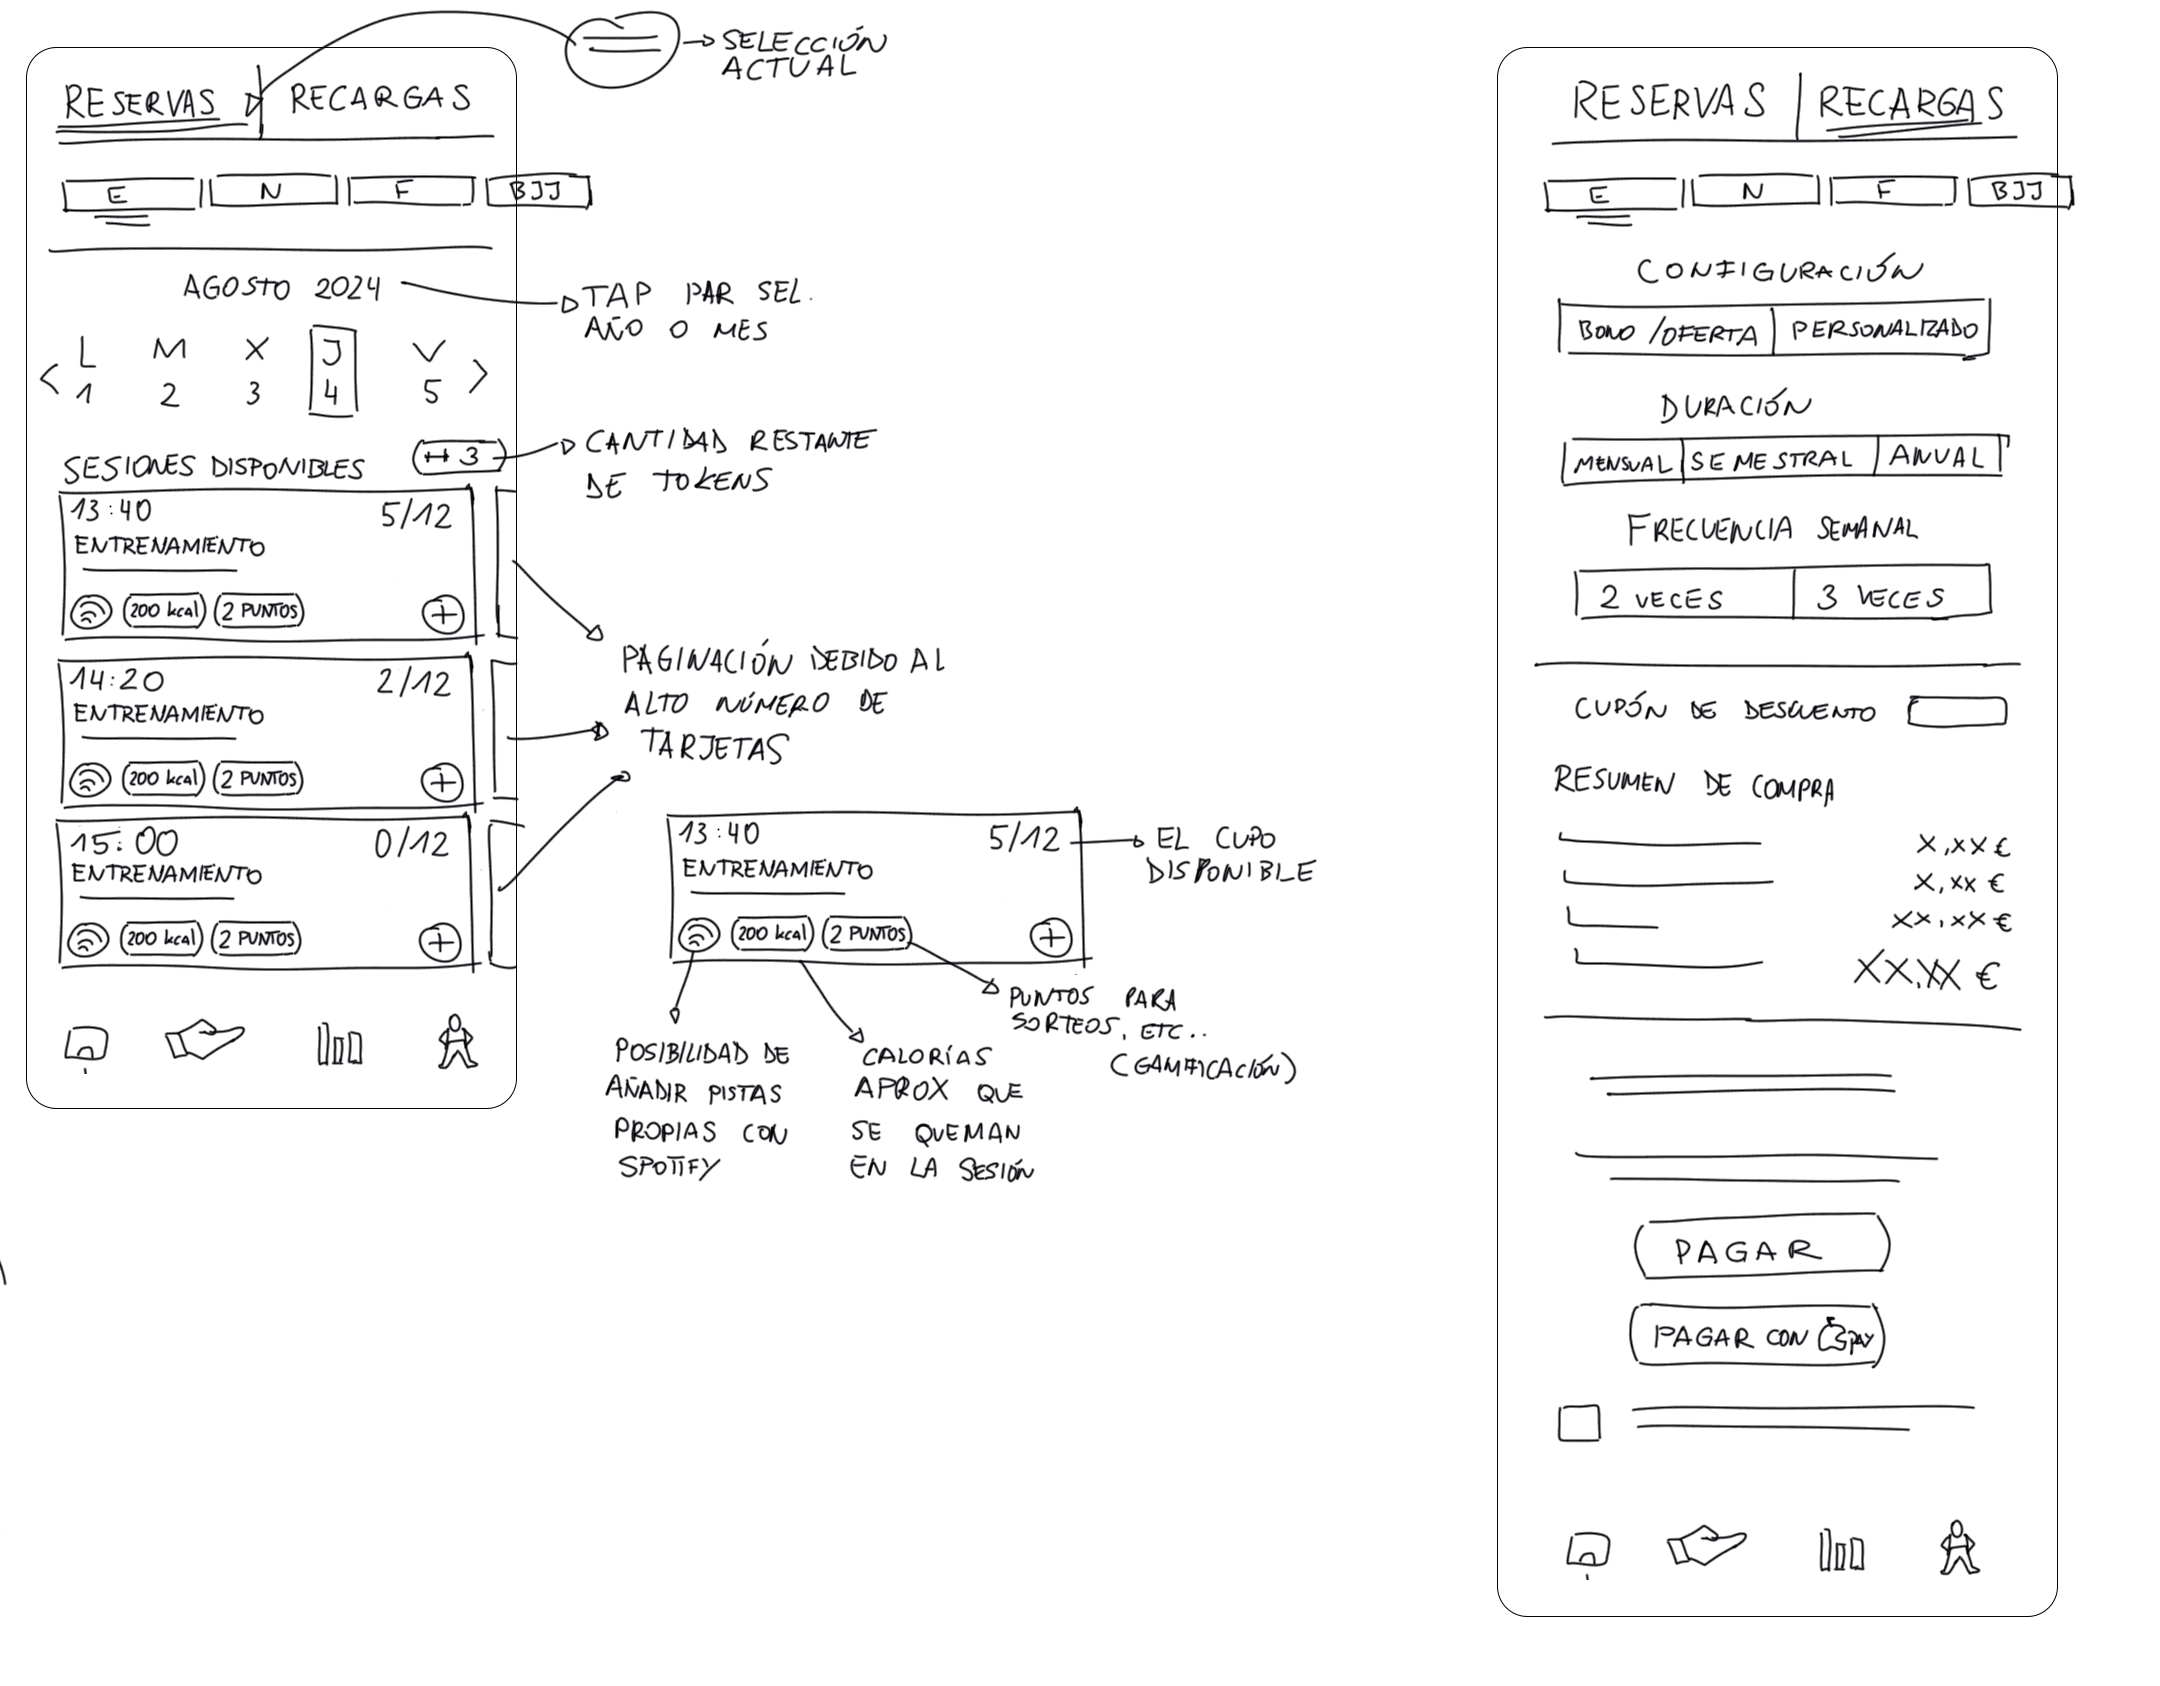 RESERVAS
RECARGAS
SELECCIÓN
ACTUAL
E
N
F
BJJ
AGOSTO 2024
TAP PAR SEL.
AÑO O MES
L M X J V
< 1 2 3 4 5 >
SESIONES DISPONIBLES
3
CANTIDAD RESTANTE
DE TOKENS
13:40 5/12
ENTRENAMIENTO
200 kcal
2 PUNTOS
+
14:20 2/12
ENTRENAMIENTO
200 kcal
2 PUNTOS
+
15:00 0/12
ENTRENAMIENTO
200 kcal
2 PUNTOS
+
PAGINACIÓN DEBIDO AL
ALTO NÚMERO DE
TARJETAS
13:40 5/12
ENTRENAMIENTO
200 kcal
2 PUNTOS
+
EL CUPO
DISPONIBLE
PUNTOS PARA
SORTEOS, ETC..
(GAMIFICACIÓN)
POSIBILIDAD DE
AÑADIR PISTAS
PROPIAS CON
SPOTIFY
CALORÍAS
APROX QUE
SE QUEMAN
EN LA SESIÓN
RESERVAS
RECARGAS
E
N
F
BJJ
CONFIGURACIÓN
BONO/OFERTA
PERSONALIZADO
DURACIÓN
MENSUAL
SEMESTRAL
ANUAL
FRECUENCIA SEMANAL
2 VECES
3 VECES
CUPÓN DE DESCUENTO
RESUMEN DE COMPRA
X,XX €
X,XX €
XX,XX €
XX,XX €
PAGAR
PAGAR CON PAY